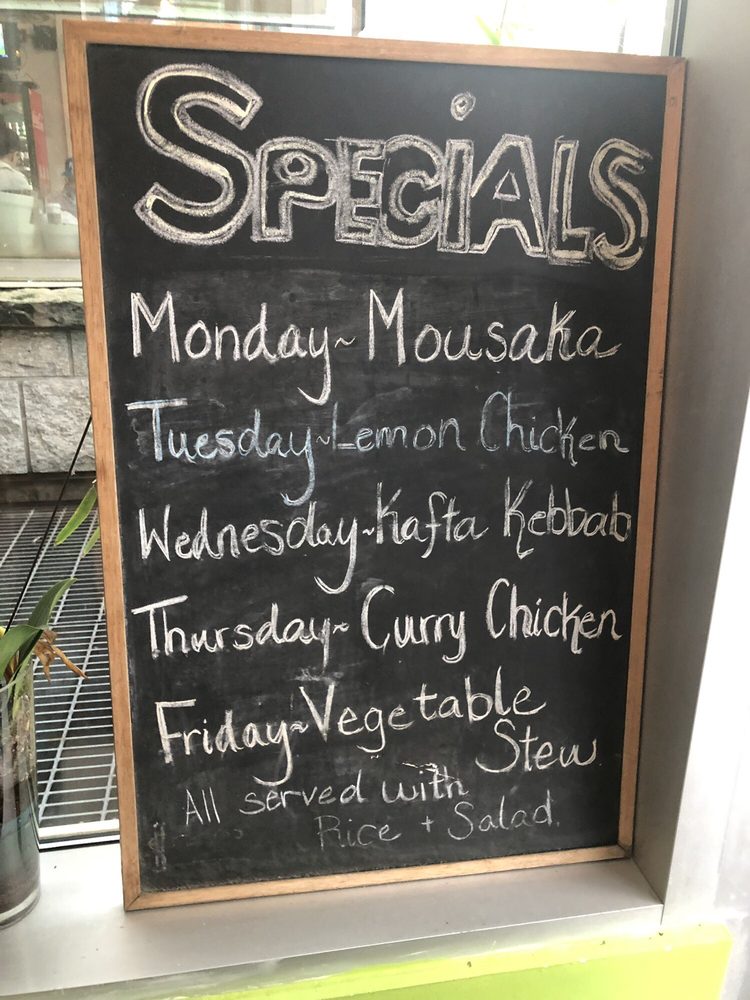 SPECiALS
Monday~ Mousaka
Tuesday~Lemon Chicken
Wednesday~Kafta Kebbab
Thursday~ Curry Chicken
Friday~Vegetable
Stew
All served with
Rice + Salad.
$